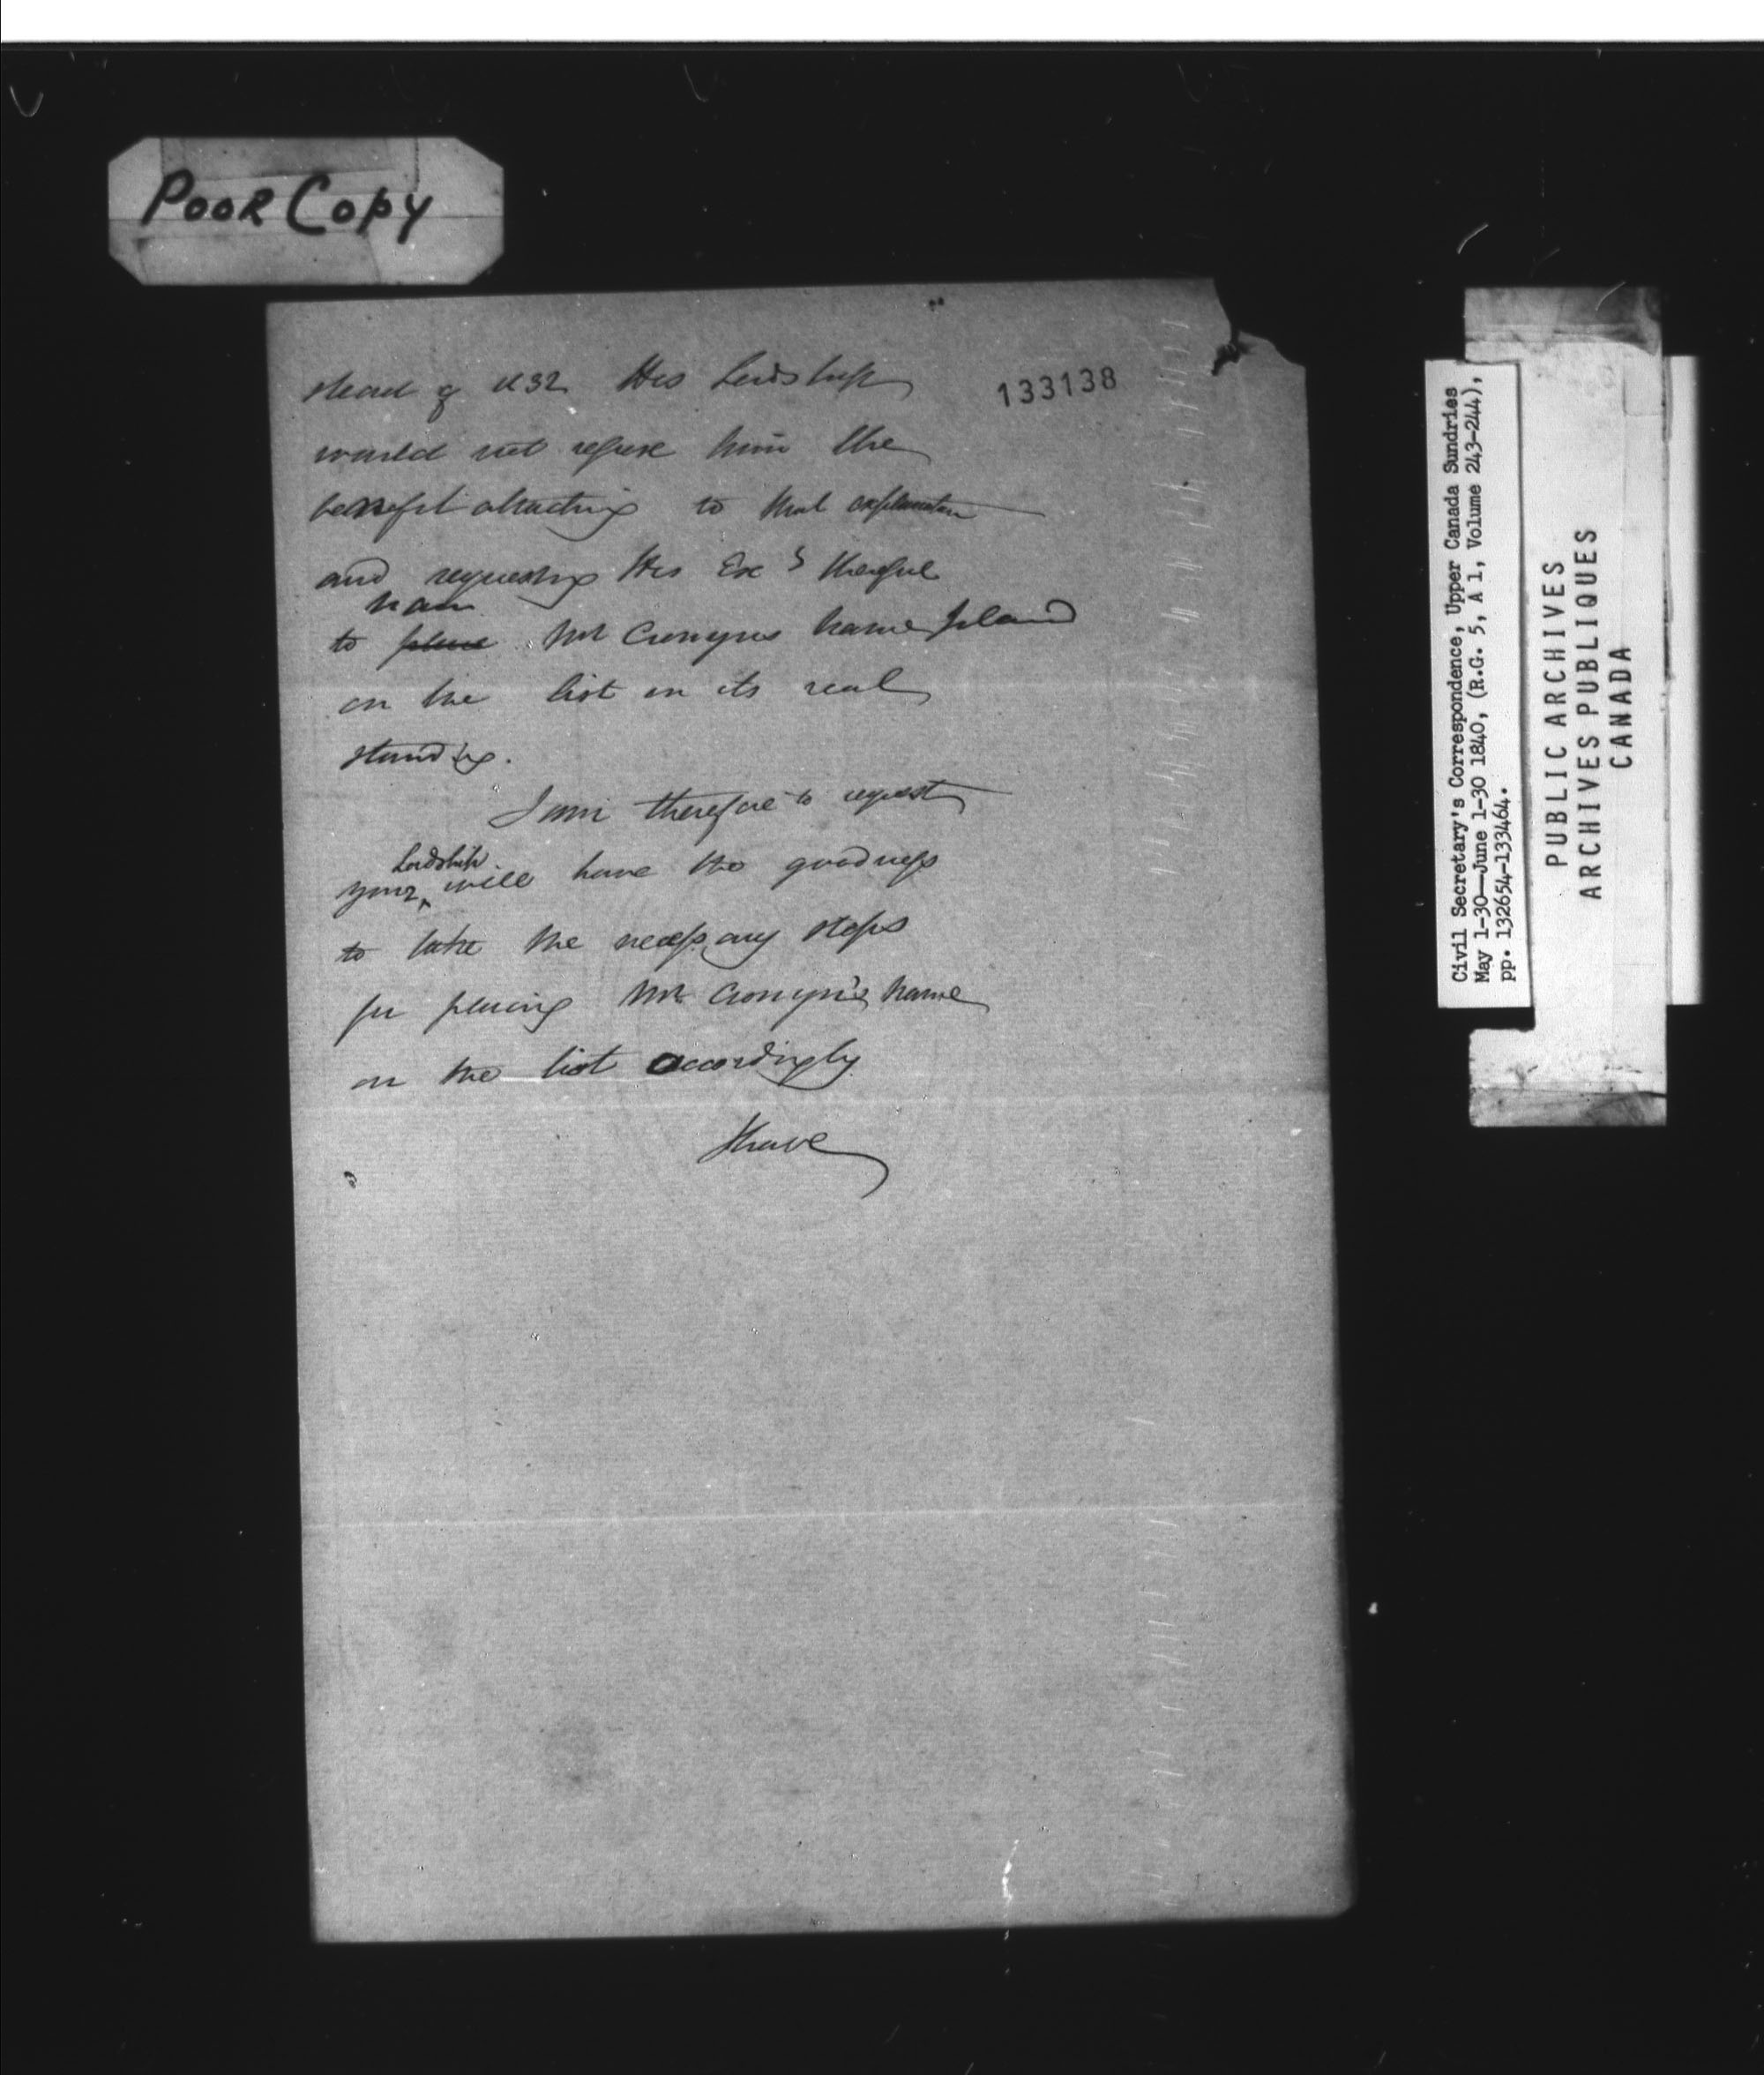 Poor Copy
133138
stead of 1832 His Lordship
would not refuse him the
benefit attaching to that explanation
and requesting His Exc^y therefore
have
to place Mr Cronyns name placed
on the list in its real
standing.
I am therefore to request
Lordship
your will have the goodness
to take the necessary steps
for placing Mr Cronyn's name
on the list accordingly
I have
Civil Secretary's Correspondence, Upper Canada Sundries
May 1-30—June 1-30 1840, (R.G. 5, A 1, Volume 243-244),
pp. 132654-133464.
PUBLIC ARCHIVES
ARCHIVES PUBLIQUES
CANADA